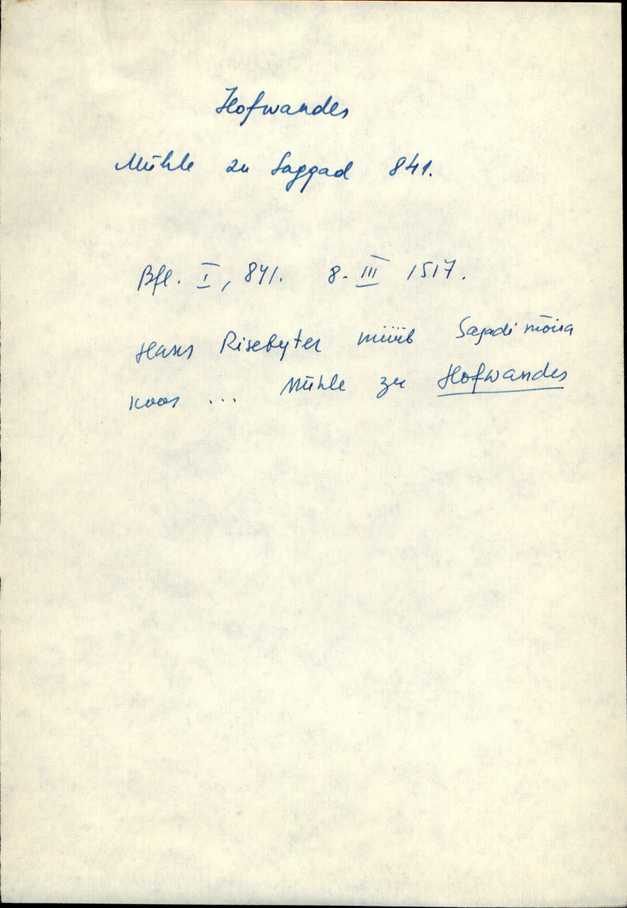 Hofwandes
Mühle zu Saggad 841.
Bfl. I, 841. 8. III 1517.
Hans Risebyter müüb Sagadi mõisa
koos ... Mühle zu Hofwandes